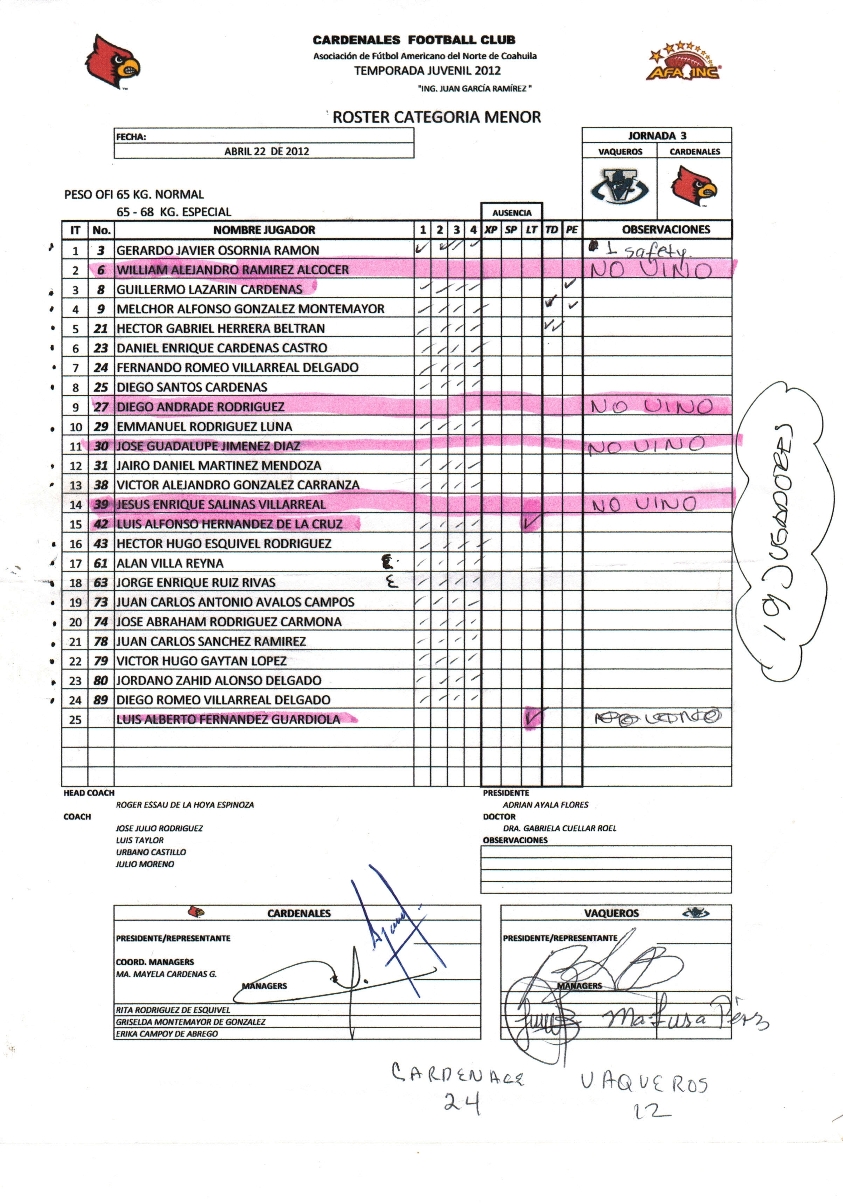 CARDENALES FOOTBALL CLUB
Asociación de Fútbol Americano del Norte de Coahuila
TEMPORADA JUVENIL 2012
"ING. JUAN GARCÍA RAMÍREZ "
AFAINC
ROSTER CATEGORIA MENOR
FECHA:
ABRIL 22 DE 2012
JORNADA 3
VAQUEROS CARDENALES
PESO OFI 65 KG. NORMAL
65 - 68 KG. ESPECIAL
AUSENCIA
IT No. NOMBRE JUGADOR 1 2 3 4 XP SP LT TD PE OBSERVACIONES
1 3 GERARDO JAVIER OSORNIA RAMON 1 safety
2 6 WILLIAM ALEJANDRO RAMIREZ ALCOCER NO VINO
3 8 GUILLERMO LAZARIN CARDENAS
4 9 MELCHOR ALFONSO GONZALEZ MONTEMAYOR
5 21 HECTOR GABRIEL HERRERA BELTRAN
6 23 DANIEL ENRIQUE CARDENAS CASTRO
7 24 FERNANDO ROMEO VILLARREAL DELGADO
8 25 DIEGO SANTOS CARDENAS
9 27 DIEGO ANDRADE RODRIGUEZ NO VINO
10 29 EMMANUEL RODRIGUEZ LUNA
11 30 JOSE GUADALUPE JIMENEZ DIAZ NO VINO
12 31 JAIRO DANIEL MARTINEZ MENDOZA
13 38 VICTOR ALEJANDRO GONZALEZ CARRANZA
14 39 JESUS ENRIQUE SALINAS VILLARREAL NO VINO
15 42 LUIS ALFONSO HERNANDEZ DE LA CRUZ
16 43 HECTOR HUGO ESQUIVEL RODRIGUEZ
17 61 ALAN VILLA REYNA E
18 63 JORGE ENRIQUE RUIZ RIVAS E
19 73 JUAN CARLOS ANTONIO AVALOS CAMPOS
20 74 JOSE ABRAHAM RODRIGUEZ CARMONA
21 78 JUAN CARLOS SANCHEZ RAMIREZ
22 79 VICTOR HUGO GAYTAN LOPEZ
23 80 JORDANO ZAHID ALONSO DELGADO
24 89 DIEGO ROMEO VILLARREAL DELGADO
25 LUIS ALBERTO FERNANDEZ GUARDIOLA
19 JUGADORES
HEAD COACH
ROGER ESSAU DE LA HOYA ESPINOZA
COACH
JOSE JULIO RODRIGUEZ
LUIS TAYLOR
URBANO CASTILLO
JULIO MORENO
PRESIDENTE
ADRIAN AYALA FLORES
DOCTOR
DRA. GABRIELA CUELLAR ROEL
OBSERVACIONES
CARDENALES
PRESIDENTE/REPRESENTANTE
COORD. MANAGERS
MA. MAYELA CARDENAS G.
MANAGERS
RITA RODRIGUEZ DE ESQUIVEL
GRISELDA MONTEMAYOR DE GONZALEZ
ERIKA CAMPOY DE ABREGO
VAQUEROS
PRESIDENTE/REPRESENTANTE
MANAGERS
Ma. Luisa Pérez
CARDENALE VAQUEROS
24 12